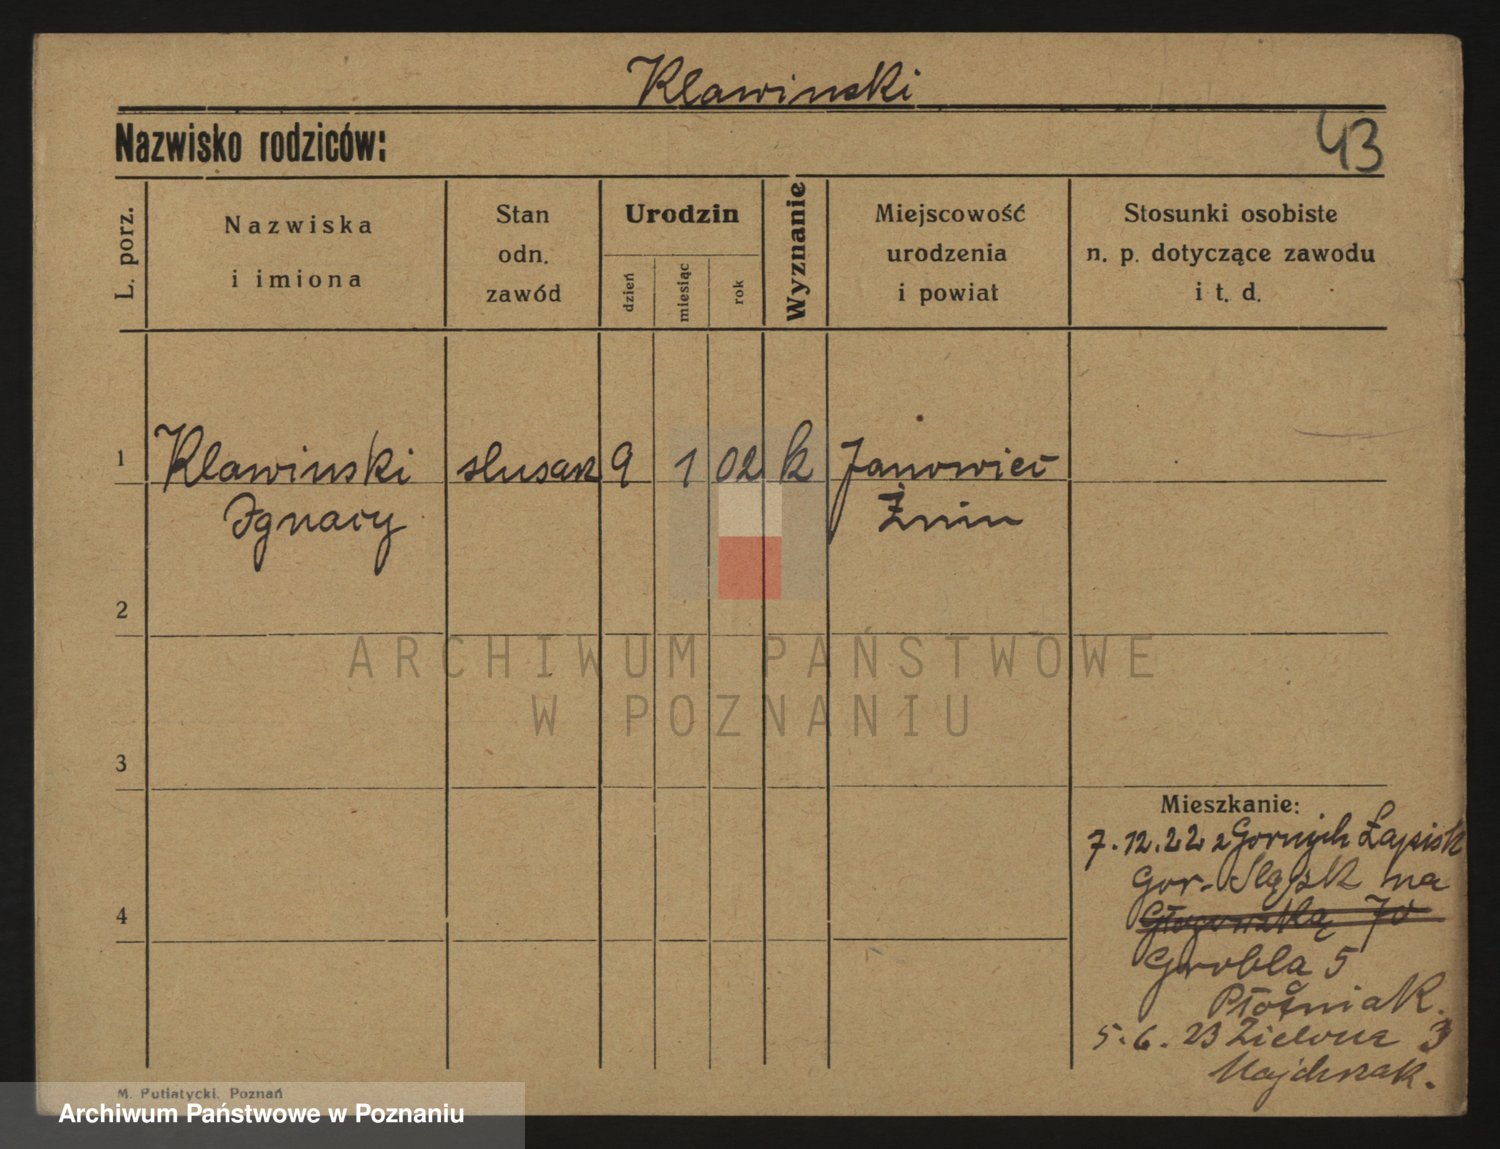 Klawinski
Nazwisko rodziców:
43
L. porz.
Nazwiska
i imiona
Stan
odn.
zawód
Urodzin
dzień
miesiąc
rok
Wyznanie
Miejscowość
urodzenia
i powiat
Stosunki osobiste
n. p. dotyczące zawodu
i t. d.
1 Klawinski slusarz 9 1 02 k Janowiec
Ignacy Żnin
2
ARCHIWUM PAŃSTWOWE
W POZNANIU
3
Mieszkanie:
7.12.22 z Gornych
Gor. Sląsk na
4
70
Grobla 5
5.6.23 Zielona 3
M. Putiatycki, Poznań
Archiwum Państwowe w Poznaniu